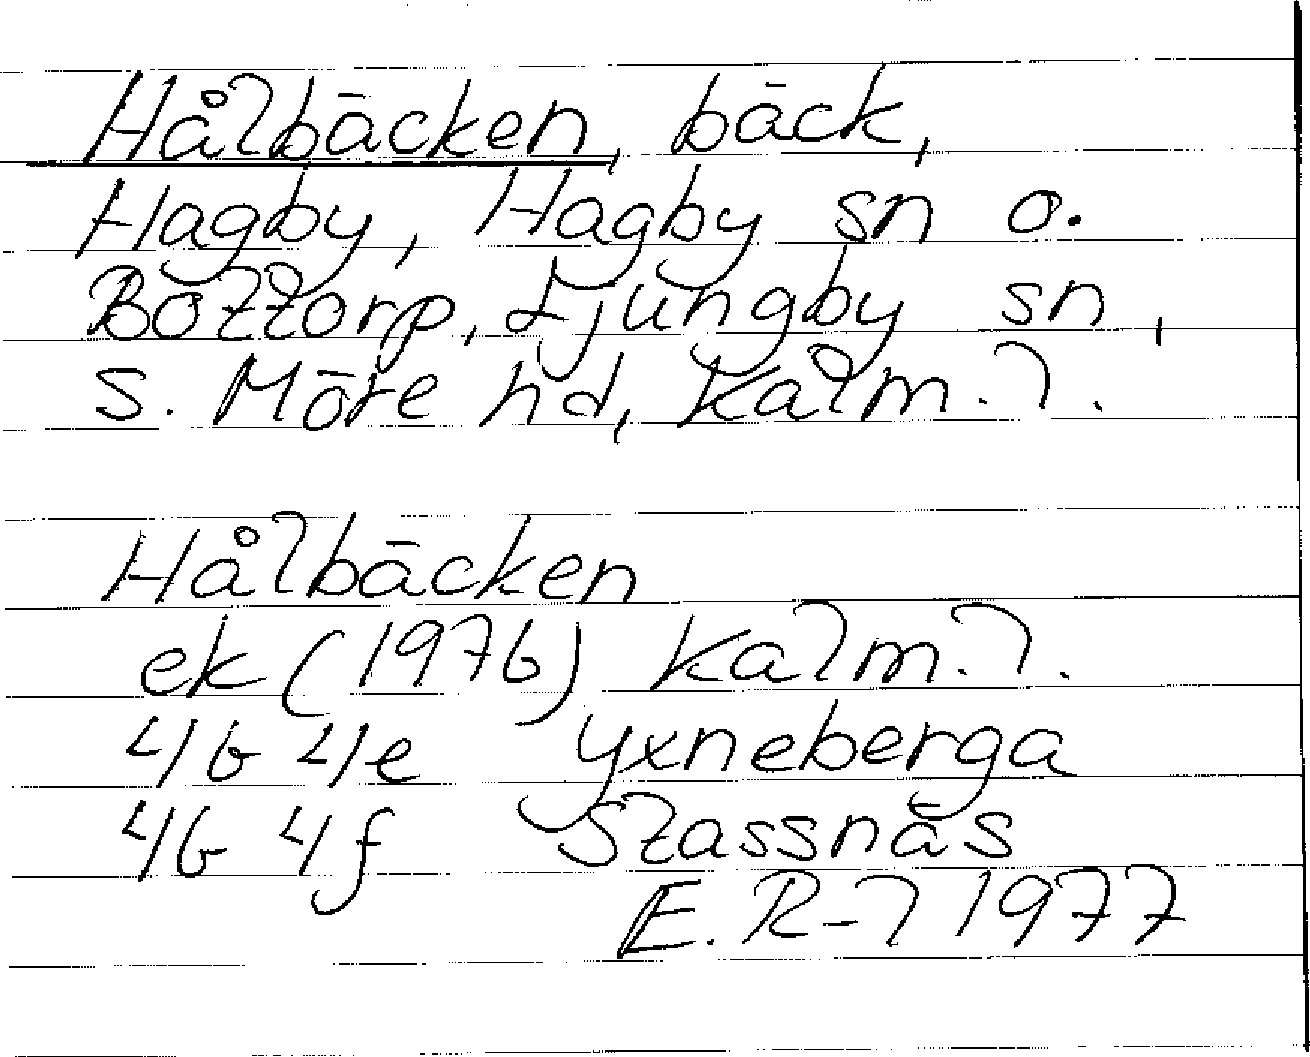 Hålbäcken, bäck,
Hagby, Hagby sn o.
Bottorp, Ljungby sn,
S. Möre hd, Kalm. l.
Hålbäcken
ek (1976) Kalm. l.
4G 4e Yxneberga
4G 4f Stassnäs
E. R-l 1977